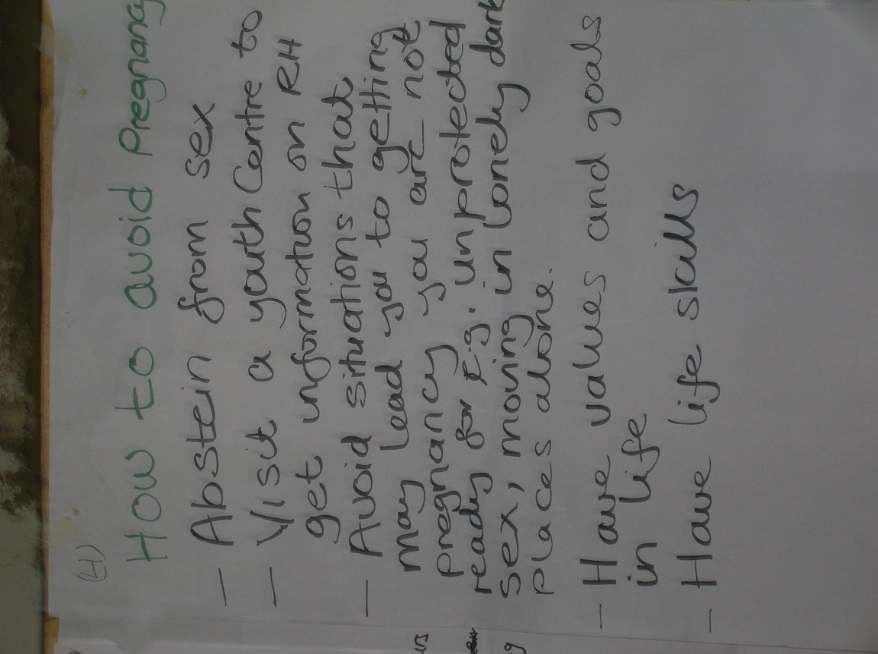 (4)
How to avoid Pregnancy
- Abstein from sex
- Visit a youth Centre to
get information on RH
- Avoid situations that
may lead you to getting
pregnancy you are not
ready for E.g. unprotected
sex, moving in lonely dark
places alone.
- Have values and goals
in life
- Have life skills